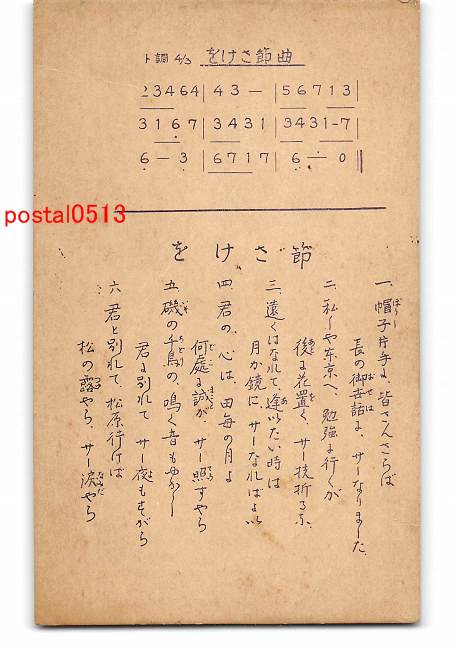 ト調 4/3 をけさ節曲
23464|43―|56713
3167|3431|3431-7
6―3|6717|6―0
postal0513
をけさ節
一、帽子片手に、皆さんさらば
長の御世話に、サーなりました
二、私しや東京へ、勉強に行くが
後に花置く、サー枝折るな
三、遠くはなれて、逢いたい時は
月か鏡に、サーなればよい
四、君の、心は、田毎の月よ
何處に誠が、サー照すやら
五、磯の千鳥の、鳴く音もゆかし
君に別れて サー夜もすがら
六、君と別れて、松原行けば
松の露やら、サー涙やら